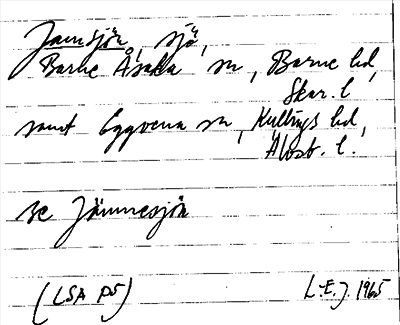 Jämsjön, sjö,
Barne Åsaka sn, Barne hd,
Skar. l
samt Eggvena sn, Kullings hd,
Älvsb. l.
se Jämnesjön
(LSA P5) L.E.J. 1965